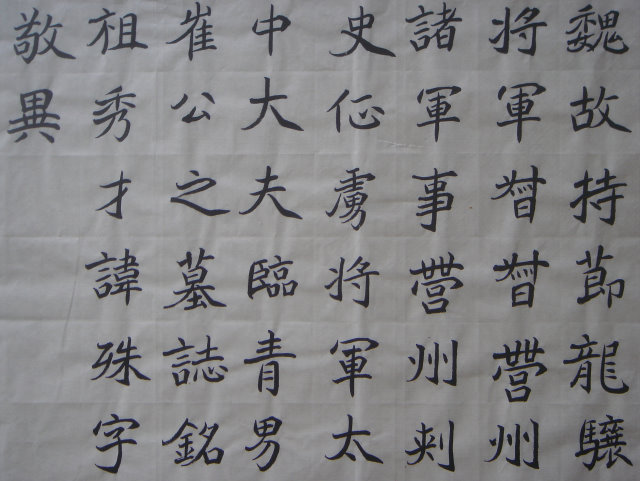 魏故持節龍驤
将軍督督營州
諸軍事營州刺
史征虜将軍太
中大夫臨青男
崔公之墓誌銘
祖秀才諱殊字
敬異